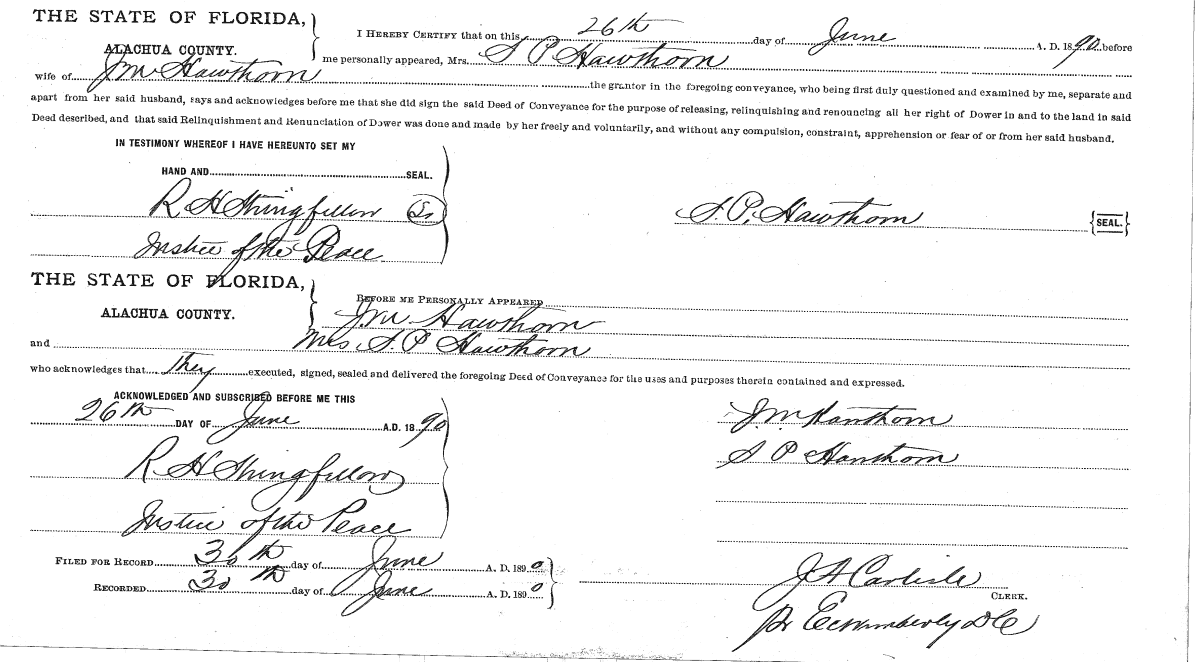 THE STATE OF FLORIDA,
ALACHUA COUNTY.
I HEREBY CERTIFY that on this 26th day of June A. D. 1890 before
me personally appeared, Mrs. S P Hawthorn
wife of J M Hawthorn the grantor in the foregoing conveyance, who being first duly questioned and examined by me, separate and
apart from her said husband, says and acknowledges before me that she did sign the said Deed of Conveyance for the purpose of releasing, relinquishing and renouncing all her right of Dower in and to the land in said
Deed described, and that said Relinquishment and Renunciation of Dower was done and made by her freely and voluntarily, and without any compulsion, constraint, apprehension or fear of or from her said husband.
IN TESTIMONY WHEREOF I HAVE HEREUNTO SET MY
HAND AND SEAL.
R H Stringfellow
S. P. Hawthorn {SEAL.}
Justice of the Peace
THE STATE OF FLORIDA,
ALACHUA COUNTY.
BEFORE ME PERSONALLY APPEARED
J M Hawthorn
and Mrs. S P Hawthorn
who acknowledges that they executed, signed, sealed and delivered the foregoing Deed of Conveyance for the uses and purposes therein contained and expressed.
ACKNOWLEDGED AND SUBSCRIBED BEFORE ME THIS
26th DAY OF June A.D. 1890
J. M. Hawthorn
R H Stringfellow
S P Hawthorn
Justice of the Peace
FILED FOR RECORD 30th day of June A. D. 1890
RECORDED 30th day of June A. D. 1890
J A Carlisle
CLERK.
pr E C Wimberly D C